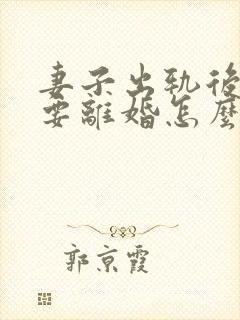 妻子出軌後
要離婚怎麼
郭京霞